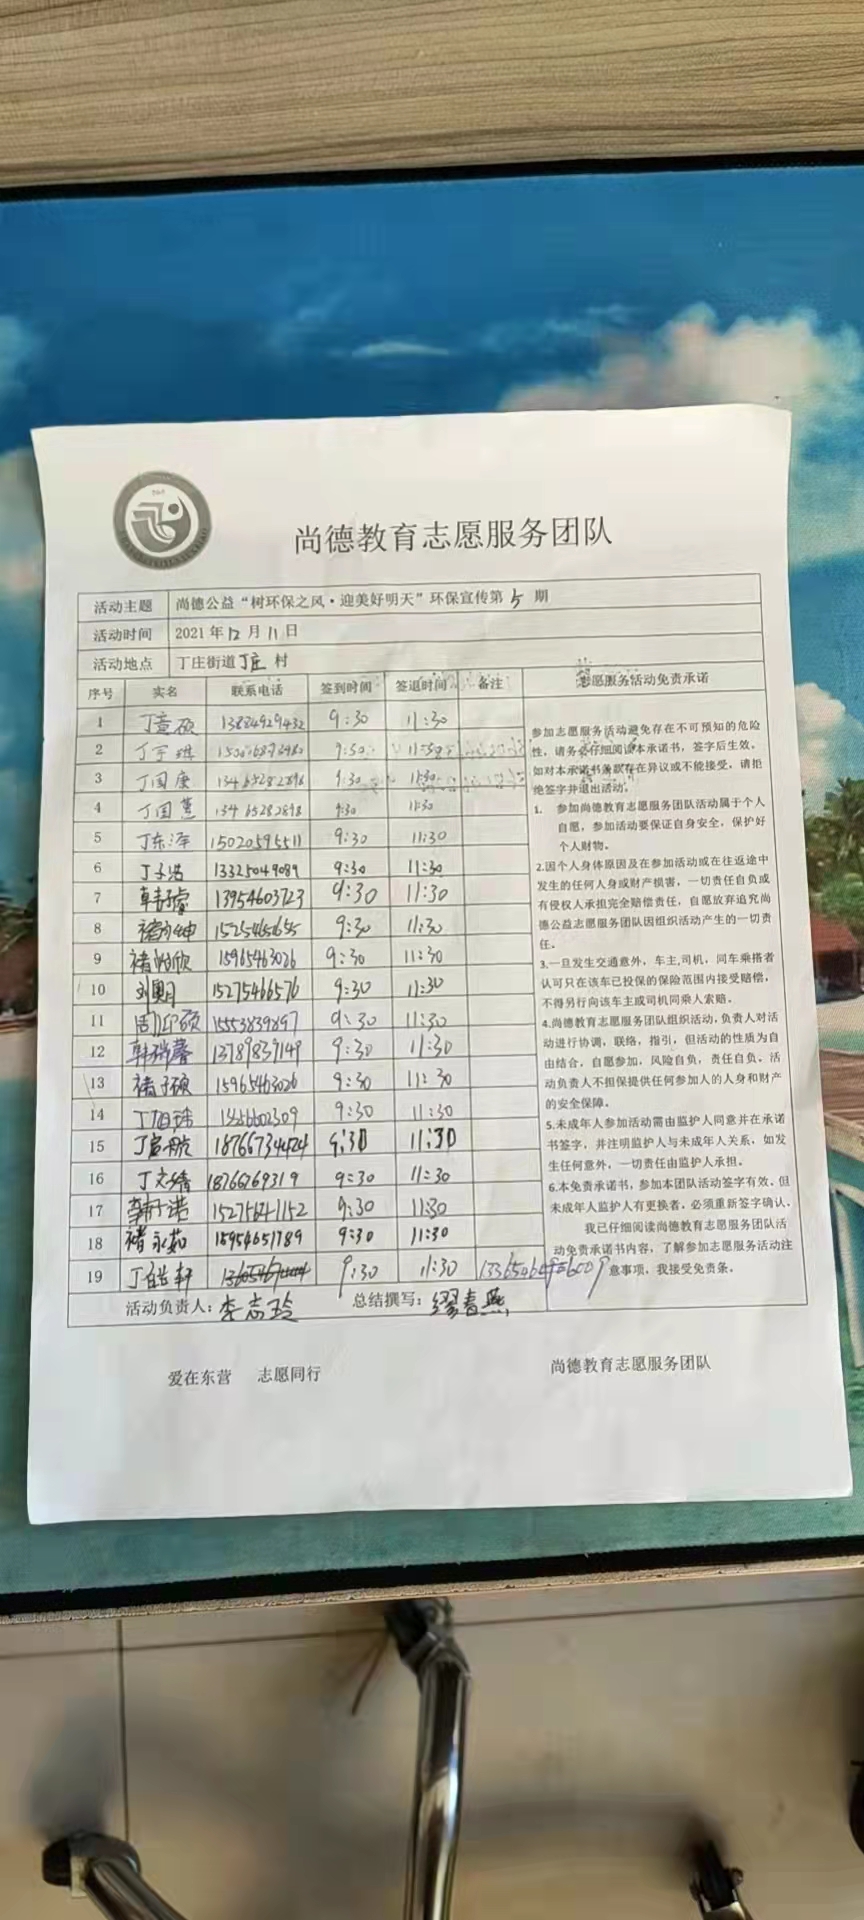 尚德教育志愿服务团队
活动主题 尚德公益“树环保之风·迎美好明天”环保宣传第5期
活动时间 2021年12月11日
活动地点 丁庄街道丁庄村
序号 实名 联系电话 签到时间 签退时间 备注 志愿服务活动免责承诺
1 9:30 11:30
2 9:30 11:30
3 丁国庚 13465282898 9:30 11:30
4 丁国慧 13465282898 9:30 11:30
5 丁东泽 15020595511 9:30 11:30
6 丁子浩 13325049089 9:30 11:30
7 13954603723 9:30 11:30
8 9:30 11:30
9 15965463026 9:30 11:30
10 15275466576 9:30 11:30
11 15553839897 9:30 11:30
12 韩瑞馨 13789839149 9:30 11:30
13 褚子硕 15965463026 9:30 11:30
14 9:30 11:30
15 18766734424 9:30 11:30
16 丁文婧 18766769319 9:30 11:30
17 9:30 11:30
18 褚永茹 15954651789 9:30 11:30
19 9:30 11:30
参加志愿服务活动避免存在不可预知的危险
性，请务必仔细阅读本承诺书，签字后生效。
如对本承诺书条款存在异议或不能接受，请拒
绝签字并退出活动。
1. 参加尚德教育志愿服务团队活动属于个人
自愿，参加活动要保证自身安全，保护好
个人财物。
2.因个人身体原因及在参加活动或在往返途中
发生的任何人身或财产损害，一切责任自负或
有侵权人承担完全赔偿责任，自愿放弃追究尚
德公益志愿服务团队因组织活动产生的一切责
任。
3.一旦发生交通意外，车主,司机，同车乘搭者
认可只在该车已投保的保险范围内接受赔偿，
不得另行向该车主或司机同乘人索赔。
4.尚德教育志愿服务团队组织活动，负责人对活
动进行协调，联络，指引，但活动的性质为自
由结合，自愿参加，风险自负，责任自负。活
动负责人不担保提供任何参加人的人身和财产
的安全保障。
5.未成年人参加活动需由监护人同意并在承诺
书签字，并注明监护人与未成年人关系，如发
生任何意外，一切责任由监护人承担。
6.本免责承诺书，参加本团队活动签字有效。但
未成年人监护人有更换者，必须重新签字确认。
我已仔细阅读尚德教育志愿服务团队活
动免责承诺书内容，了解参加志愿服务活动注
意事项，我接受免责条。
活动负责人：李志玲 总结撰写：缪春燕
爱在东营 志愿同行 尚德教育志愿服务团队